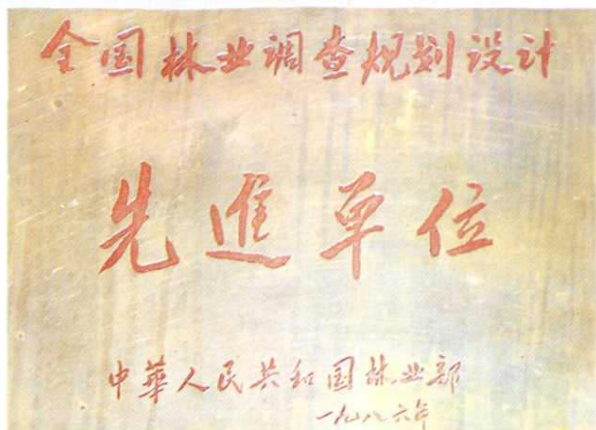 全国林业调查规划设计
先進单位
中華人民共和国林业部
一九八六年